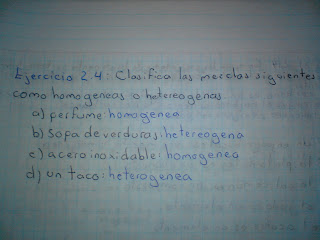 Ejercicio 2.4: Clasifica las mezclas siguientes
como homogeneas o hetereogenas.
a) perfume: homogenea
b) Sopa de verduras: hetereogena
c) acero inoxidable: homogenea
d) un taco: heterogenea